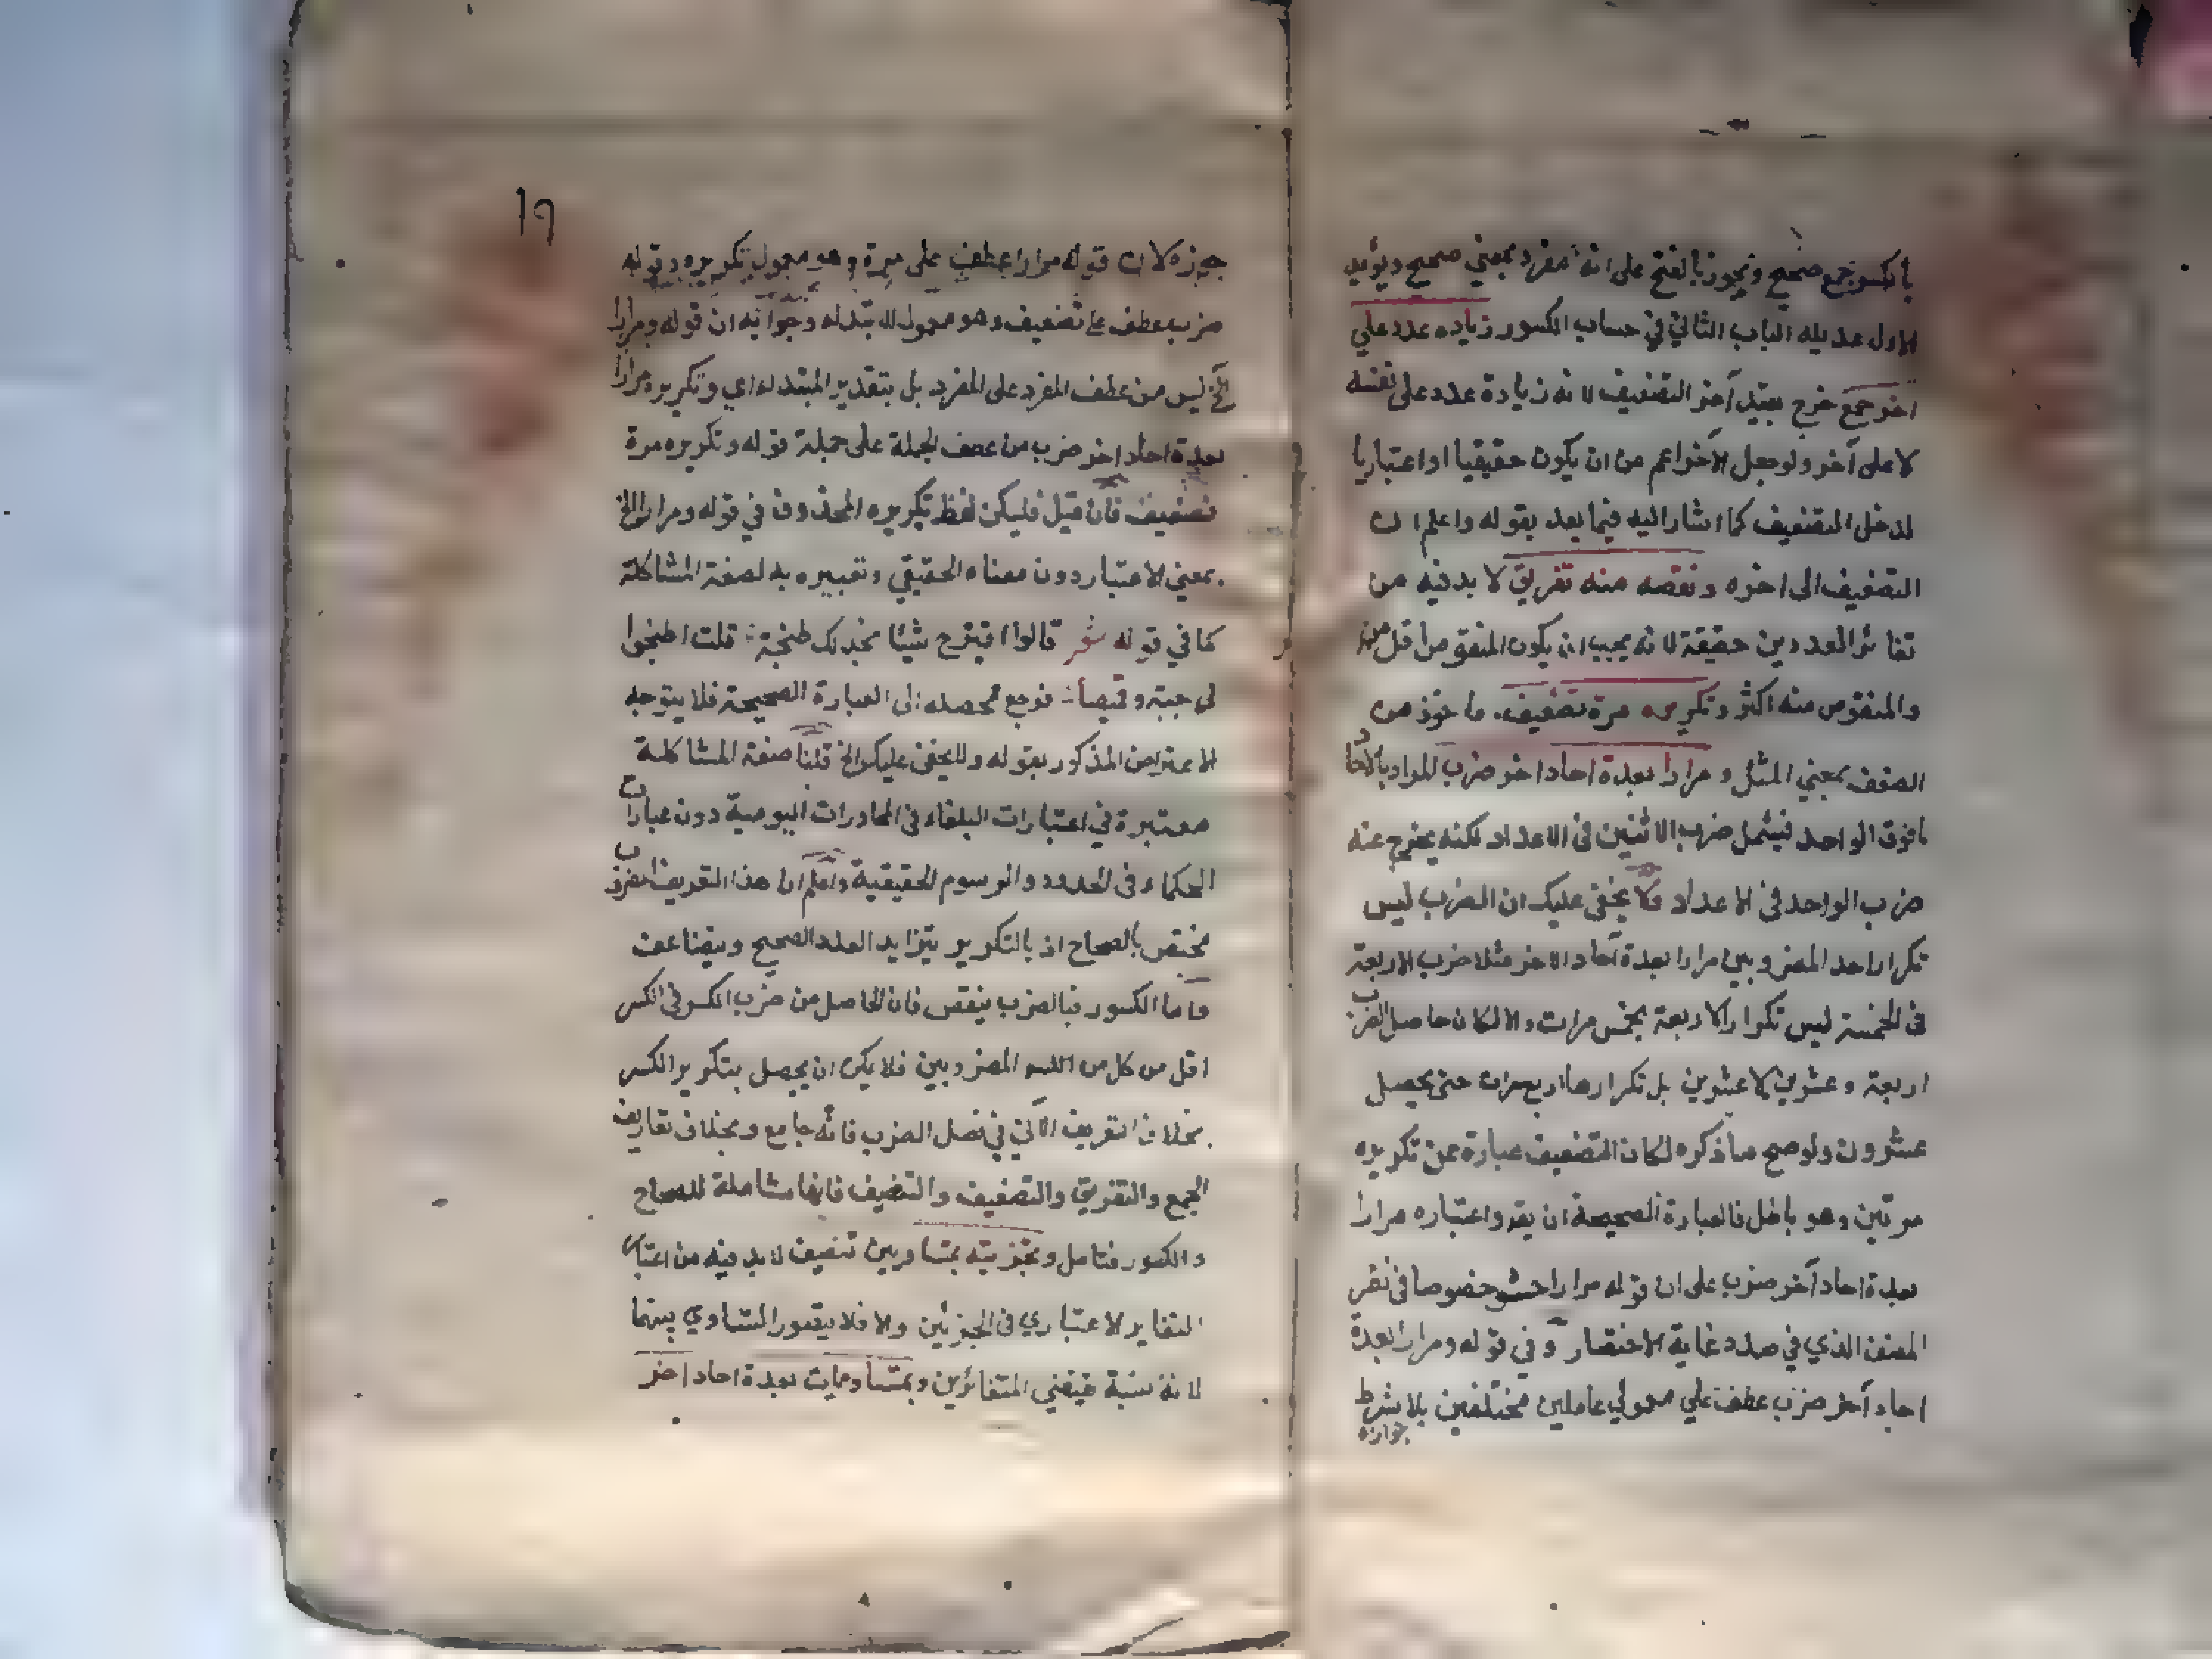 بالكسر جمع صحيح ويجوز بالفتح على انه مفرد بمعني صحيح ويؤيد
الاول عديله الباب الثاني في حساب الكسور زيادة عدد علي
آخر جمع خرج بقيد آخر التضعيف لانه زيادة عدد على نفسه
لا على آخر ولو جعل الآخر اعم من ان يكون حقيقيا او اعتباريا
لدخل التضعيف كما اشار اليه فيما بعد بقوله واعلم ان
التضعيف الى اخره ونقصه منه تفريق لا بد فيه من
تغائر العددين حقيقة لانه يجب ان يكون المنقوص اقل من
والمنقوص منه اكثر وتكريره مرة تضعيف ماخوذ من
الضعف بمعني المثل و مرارا بعدة احاد اخر ضرب المراد بالاحاد
مافوق الواحد فيشمل ضرب الاثنين في الاعداد لكنه يخرج عنه
ضرب الواحد في الاعداد ولا يخفى عليك ان الضرب ليس
تكرار احد المضروبين مرارا بعدة آحاد الاخر مثلا ضرب الاربعة
في الخمسة ليس تكرار الاربعة بخمس مرات والا لكان حاصل الضرب
اربعة وعشرين لا عشرين بل تكرارها اربع مرات حتى يحصل
عشرون ولو صح ما ذكره لكان التضعيف عبارة عن تكريره
مرتين وهو باطل فالعبارة الصحيحة ان يقر واعتباره مرارا
بعدة احاد آخر ضرب على ان قوله مرارا حشو خصوصا في نظر
المصنف الذي في صدد غاية الاختصار وفي قوله ومرارا بعدة
احاد آخر ضرب عطف علي معمولي عاملين مختلفين بلا شرط
جوازه
١٩
جوزه لان قوله مرارا عطف على مرة وهو معمول تكريره وقوله
ضرب عطف على تضعيف وهو معمول للابتداء وجوابه ان قوله ومرارا
الخ ليس من عطف المفرد على المفرد بل بتقدير المبتداء اي وتكريره مرارا
بعدة احاد اخر ضرب من عطف الجملة على جملة قوله وتكريره مرة
تضعيف فان قيل فليكن لفظ تكريره المحذوف في قوله ومرارا الخ
بمعني الاعتبار دون معناه الحقيقي وتعبيره به لصنعة المشاكلة
كما في قوله شعر قالوا اقترح شيئا نجد لك طبخة قلت اطبخوا
لي جبة وقميصا فرجع محصله الى العبارة الصحيحة فلا يتوجه
الاعتراض المذكور بقوله ولا يخفى عليك الخ قلنا صنعة المشاكلة
معتبرة في اعتبارات البلغاء في المحاورات اليومية دون عبارات
الحكماء في الحدود والرسوم الحقيقية واعلم ان هذا التعريف للضرب
مختص بالصحاح اذ بالتكرير يتزايد العدد الصحيح ويتضاعف
واما الكسور فبالضرب ينقص فان الحاصل من ضرب الكسر في الكسر
اقل من كل من المضروبين فلا يمكن ان يحصل بتكرير الكسر
بخلاف التعريف الآتي في فصل الضرب فانه جامع وبخلاف تعاريف
الجمع والتفريق والتضعيف والتنصيف فانها شاملة للصحاح
والكسور فتامل وتجزيته بمتساويين تنصيف لا بد فيه من اعتبار
التغاير الاعتباري في الجزئين والا فلا يتصور التساوي بينهما
لانه نسبة فيقتضي المتغائرين وبمتساويات بعدة احاد اخر